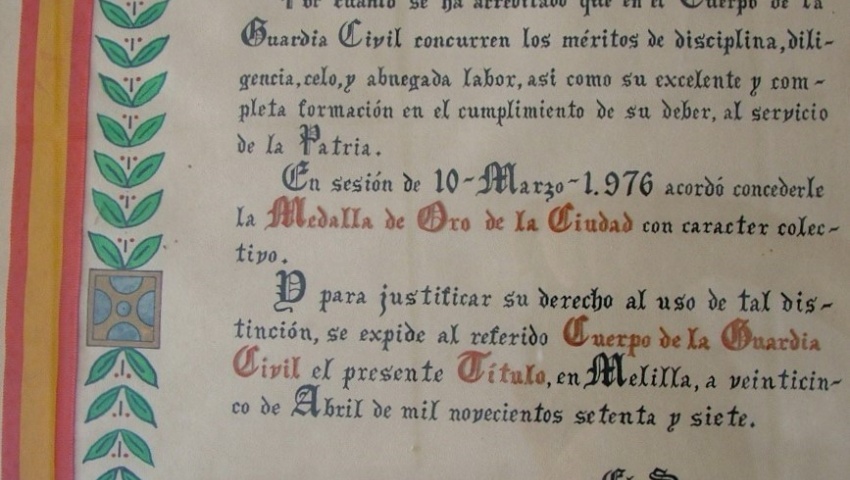 Por cuanto se ha acreditado que en el Cuerpo de la
Guardia Civil concurren los méritos de disciplina, dili-
gencia, celo, y abnegada labor, asi como su excelente y com-
pleta formación en el cumplimiento de su deber, al servicio
de la Patria.
En sesión de 10-Marzo-1.976 acordó concederle
la Medalla de Oro de la Ciudad con caracter colec-
tivo.
Y para justificar su derecho al uso de tal dis-
tinción, se expide al referido Cuerpo de la Guardia
Civil el presente Título, en Melilla, a veinticin-
co de Abril de mil novecientos setenta y siete.
El